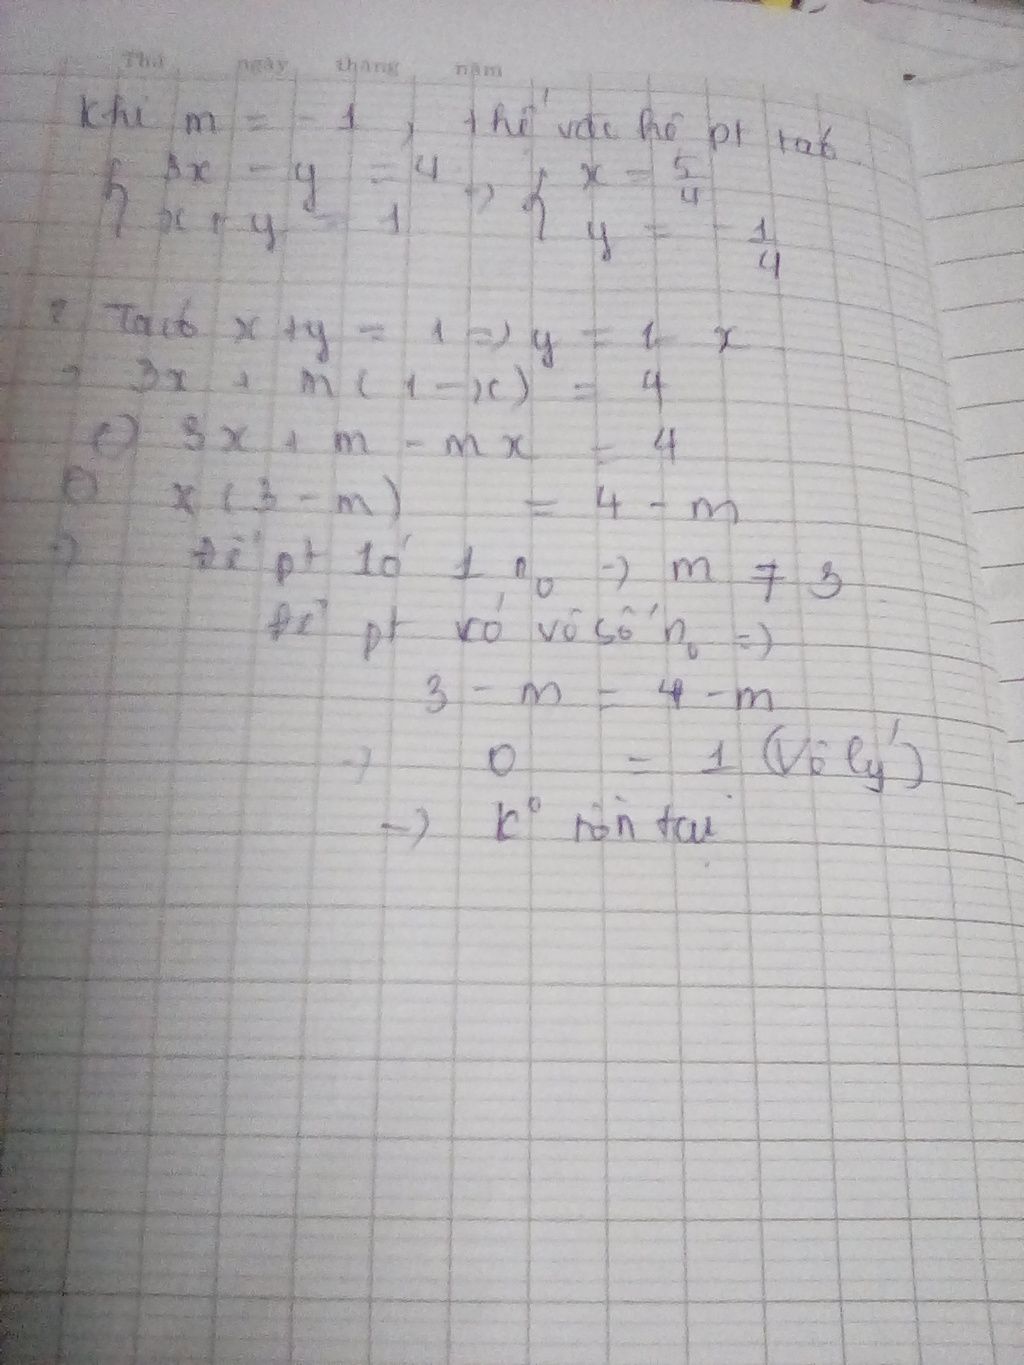 Thứ ngày tháng năm
Khi m = -1, thế vào hệ pt ta có
{ 3x - y = 4 => { x = 5/4
{ x + y = 1 { y = -1/4
2 Ta có x + y = 1 => y = 1 - x
=> 3x + m(1 - x) = 4
<=> 3x + m - mx = 4
<=> x(3 - m) = 4 - m
=> Để pt có 1 n₀ => m ≠ 3
Để pt có vô số n₀ =>
3 - m = 4 - m
=> 0 = 1 (Vô lý)
=> K⁰ tồn tại